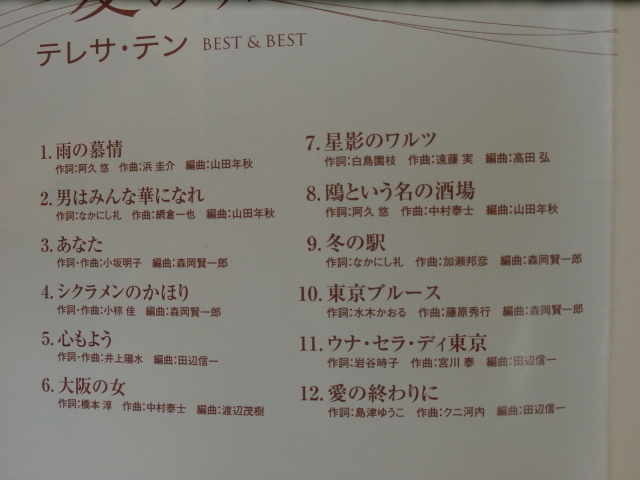 愛の
テレサ・テン BEST & BEST
1. 雨の慕情
作詞:阿久 悠 作曲:浜 圭介 編曲:山田年秋
2. 男はみんな華になれ
作詞:なかにし礼 作曲:網倉一也 編曲:山田年秋
3. あなた
作詞・作曲:小坂明子 編曲:森岡賢一郎
4. シクラメンのかほり
作詞・作曲:小椋 佳 編曲:森岡賢一郎
5. 心もよう
作詞・作曲:井上陽水 編曲:田辺信一
6. 大阪の女
作詞:橋本 淳 作曲:中村泰士 編曲:渡辺茂樹
7. 星影のワルツ
作詞:白鳥園枝 作曲:遠藤 実 編曲:高田 弘
8. 鴎という名の酒場
作詞:阿久 悠 作曲:中村泰士 編曲:山田年秋
9. 冬の駅
作詞:なかにし礼 作曲:加瀬邦彦 編曲:森岡賢一郎
10. 東京ブルース
作詞:水木かおる 作曲:藤原秀行 編曲:森岡賢一郎
11. ウナ・セラ・ディ東京
作詞:岩谷時子 作曲:宮川 泰 編曲:田辺信一
12. 愛の終わりに
作詞:島津ゆうこ 作曲:クニ河内 編曲:田辺信一